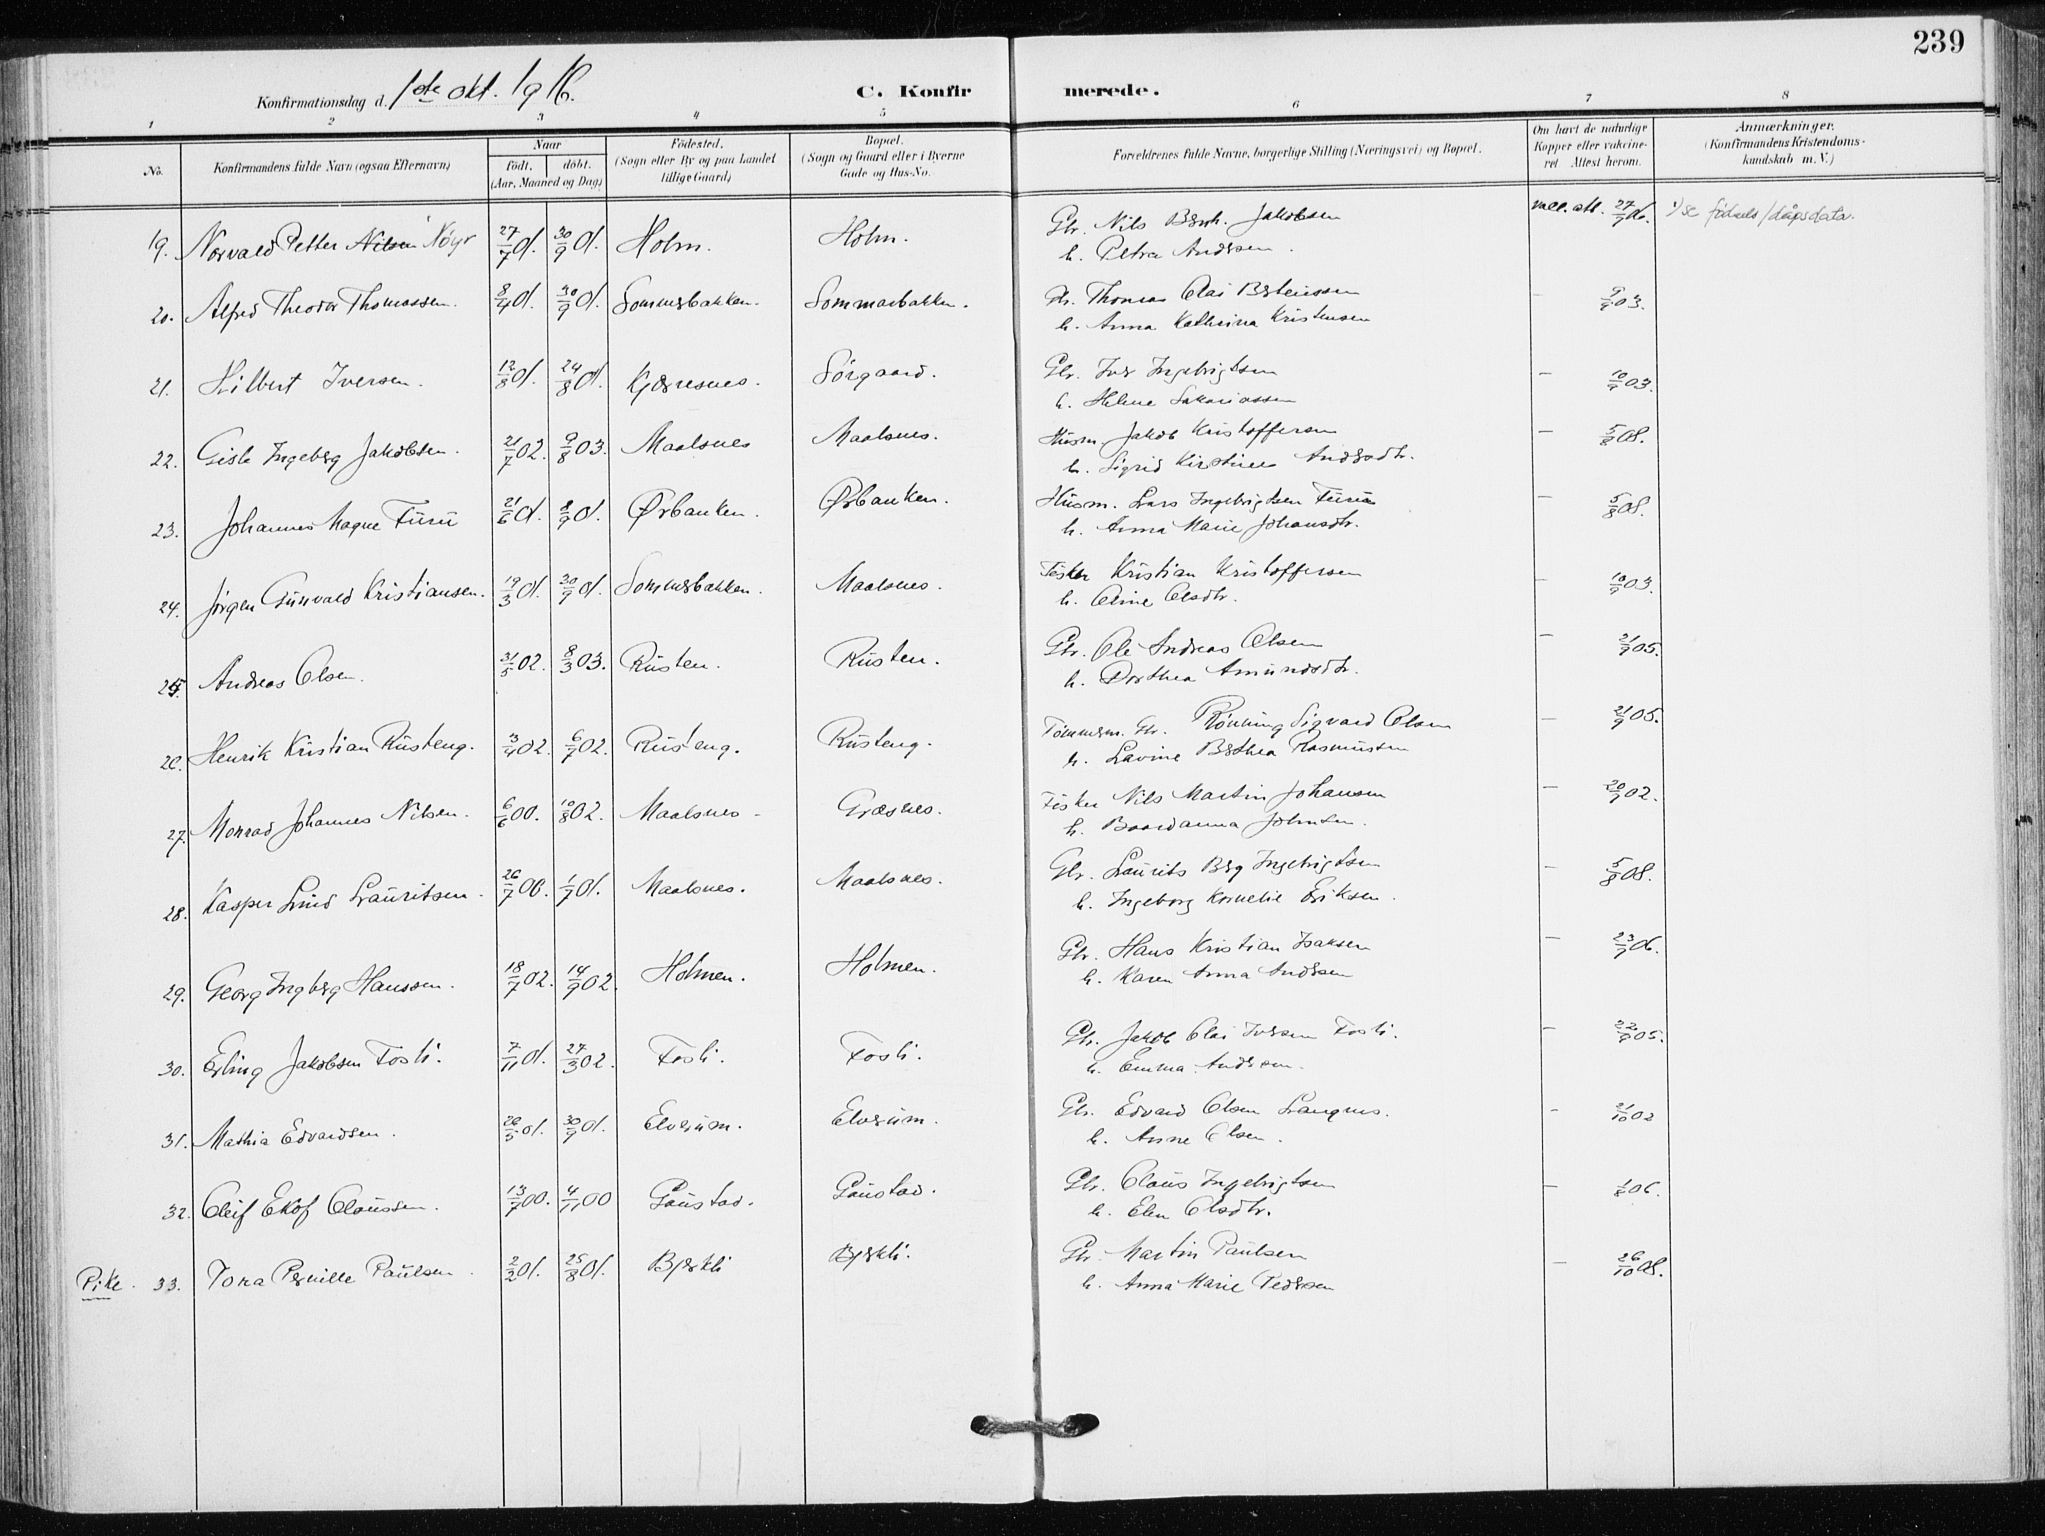 239
Konfirmationsdag d. 1ste okt. 1916.
C. Konfirmerede.
1 2 3 4 5 6 7 8
No.
Konfirmandens fulde Navn (ogsaa Efternavn)
Naar
født. døbt.
(Aar, Maaned og Dag)
Fødested.
(Sogn eller By og paa Landet
tillige Gaard)
Bopæl.
(Sogn og Gaard eller i Byerne
Gade og Hus-No.
Forældrenes fulde Navne, borgerlige Stilling (Næringsvei) og Bopæl.
Om havt de naturlige
Kopper eller vakcine-
ret Attest herom.
Anmærkninger.
(Konfirmandens Kristendoms-
kundskab m. V.)
19. Norvald Petter Nilsen Nöyr 27/7 01. 30/9 01. Holm. Holm. Gbr. Nils Bernh. Jakobsen vacc. att. 27/9 06. 1) se fødsels/dåpsdata.
h. Petra Andersen.
20. Alfred Theodor Thomassen. 8/4 01. 30/9 01. Sommerbakken. Sommerbakken. Gbr. Thomas Olai Berteussen - 9/9 03.
h. Anna Kathrina Kristensen
21. Hilbert Iversen. 12/8 01. 24/8 01. Kjærresnes. Sörgaard. Gbr. Iver Ingebrigtsen - 10/9 03.
h. Helene Sakariassen
22. Gisle Ingeberg Jakobsen. 21/7 02. 9/8 03. Maalsnes Maalsnes. Husm. Jakob Kristoffersen - 5/8 08.
h. Sigrid Kirstine Andersdtr.
23. Johannes Magne Furu 21/6 01. 8/9 01. Ørbakken. Ørbakken. Husm. Lars Ingebrigtsen Furu - 5/8 08.
h. Anna Marie Johansdtr.
24. Jörgen Gunvald Kristiansen. 19/3 01. 30/9 01. Sommerbakken. Maalsnes. Fisker Kristian Kristoffersen - 10/9 03.
h. Oline Olsdtr.
25. Andreas Olsen. 31/5 02. 8/3 03. Rusten. Rusten. Gbr. Ole Andreas Olsen - 21/9 05.
h. Dorthea Amundsdtr.
26. Henrik Kristian Rusteng. 3/4 02. 6/7 02. Rusteng. Rusteng. Tömmerm. Gbr. Rönning Sigvard Olsen - 21/9 05.
h. Lavine Berthea Rasmussen
27. Monrad Johannes Nilsen. 6/6 00. 10/8 02. Maalsnes - Græsnes. Fisker Nils Martin Johansen - 20/9 02.
h. Baardanna Johnsen.
28. Kasper Lind Lauritsen. 26/7 00. 1/7 01. Maalsnes. Maalsnes. Gbr. Laurits Berg Ingebrigtsen - 5/8 08.
h. Ingeborg Kornelie Eriksen.
29. Georg Ingberg Hanssen. 18/7 02. 14/9 02. Holmen. Holmen. Gbr. Hans Kristian Isaksen - 23/9 06.
h. Karen Anna Andersen
30. Erling Jakobsen Fosli. 7/11 01. 27/3 02. Fosli. Fosli. Gbr. Jakob Olai Iversen Fosli. - 22/9 05.
h. Emma Andersen.
31. Mathia Edvardsen. 26/5 01. 30/9 01. Elverum. Elverum. Gbr. Edvard Olsen Langnes. - 21/10 02
h. Anne Olsen.
32. Oleif Ekof Claussen. 13/7 00. 4/11 00 Gaustad. Gaustad. Gbr. Claus Ingebrigtsen - 1/8 06.
h. Elen Olsdtr.
Pike. 33. Tora Pernille Paulsen. 2/2 01. 25/8 01. Bjerkli Bjerkli. Gbr. Martin Paulsen - 26/10 08.
h. Anna Marie Pedersen